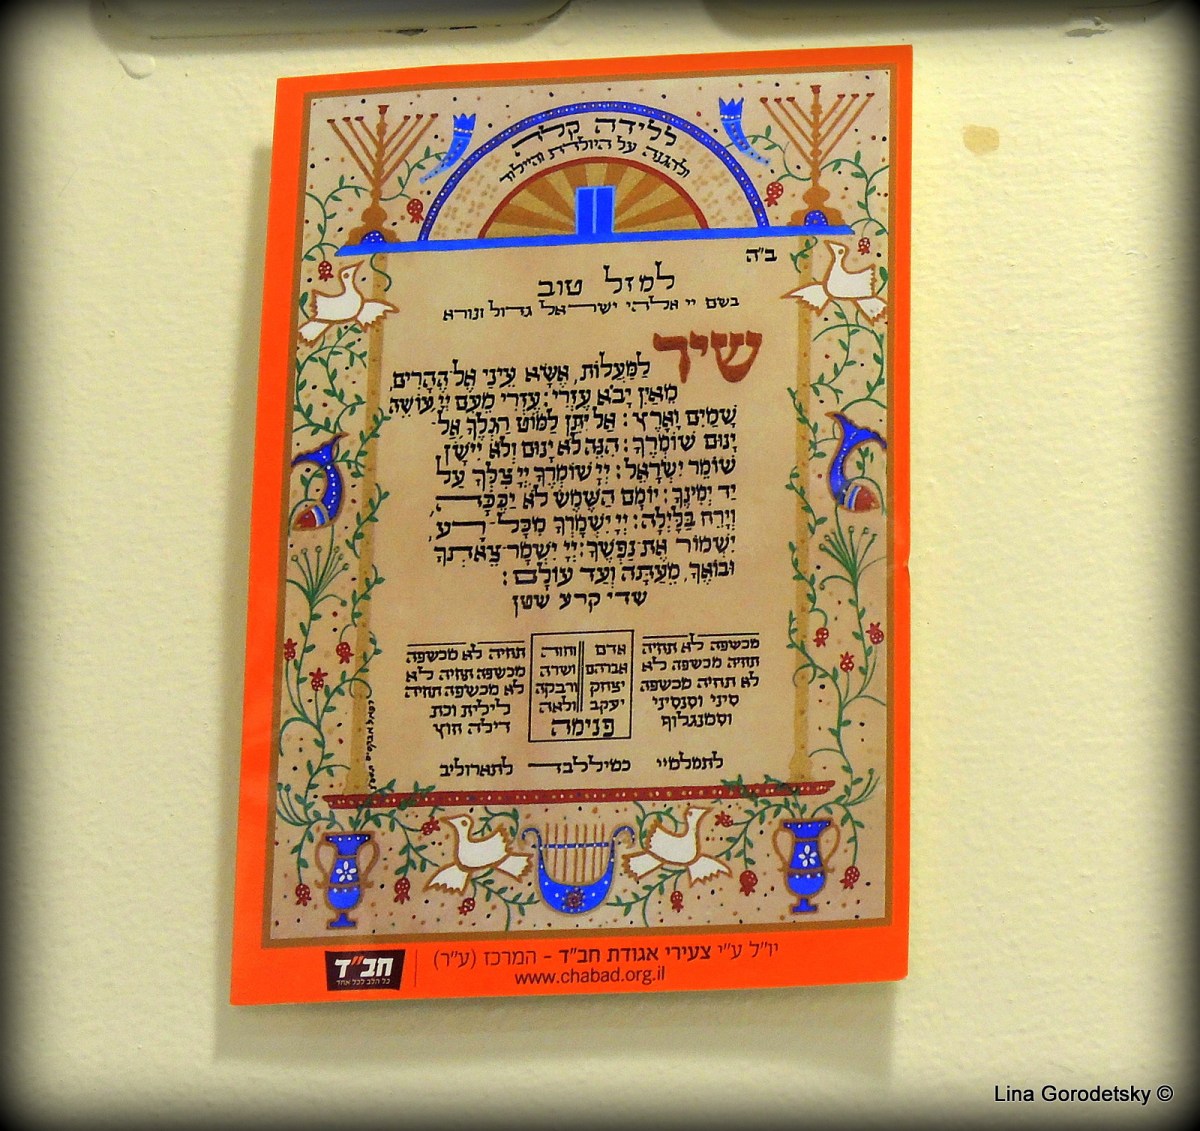 ללידה קלה
ולהגנה על היולדת והיילוד
ב״ה
למזל טוב
בשם יי אלהי ישראל גדול ונורא
שיר
לַמַּעֲלוֹת, אֶשָּׂא עֵינַי אֶל הֶהָרִים,
מֵאַיִן יָבֹא עֶזְרִי: עֶזְרִי מֵעִם יְיָ, עוֹשֵׂה
שָׁמַיִם וָאָרֶץ: אַל יִתֵּן לַמּוֹט רַגְלֶךָ אַל
יָנוּם שׁוֹמְרֶךָ: הִנֵּה לֹא יָנוּם וְלֹא יִישָׁן
שׁוֹמֵר יִשְׂרָאֵל: יְיָ שׁוֹמְרֶךָ יְיָ צִלְּךָ עַל
יַד יְמִינֶךָ: יוֹמָם הַשֶּׁמֶשׁ לֹא יַכֶּכָּה,
וְיָרֵחַ בַּלָּיְלָה: יְיָ יִשְׁמָרְךָ מִכָּל רָע,
יִשְׁמוֹר אֶת נַפְשֶׁךָ: יְיָ יִשְׁמָר צֵאתְךָ
וּבוֹאֶךָ, מֵעַתָּה וְעַד עוֹלָם:
שדי קרע שטן
מכשפה לא תחיה
תחיה מכשפה לא
לא תחיה מכשפה
סיני וסנסיני
וסמנגלוף
אדם וחוה
אברהם ושרה
יצחק ורבקה
יעקב ולאה
פנימה
תחיה לא מכשפה
מכשפה תחיה לא
לא מכשפה תחיה
לילית וכת
דילה חוץ
לתמלמיי כמיללבד לתארוליב
יו״ל ע״י צעירי אגודת חב״ד - המרכז (ע״ר)
www.chabad.org.il
חב״ד
כל הלב לכל אחד
Lina Gorodetsky ©